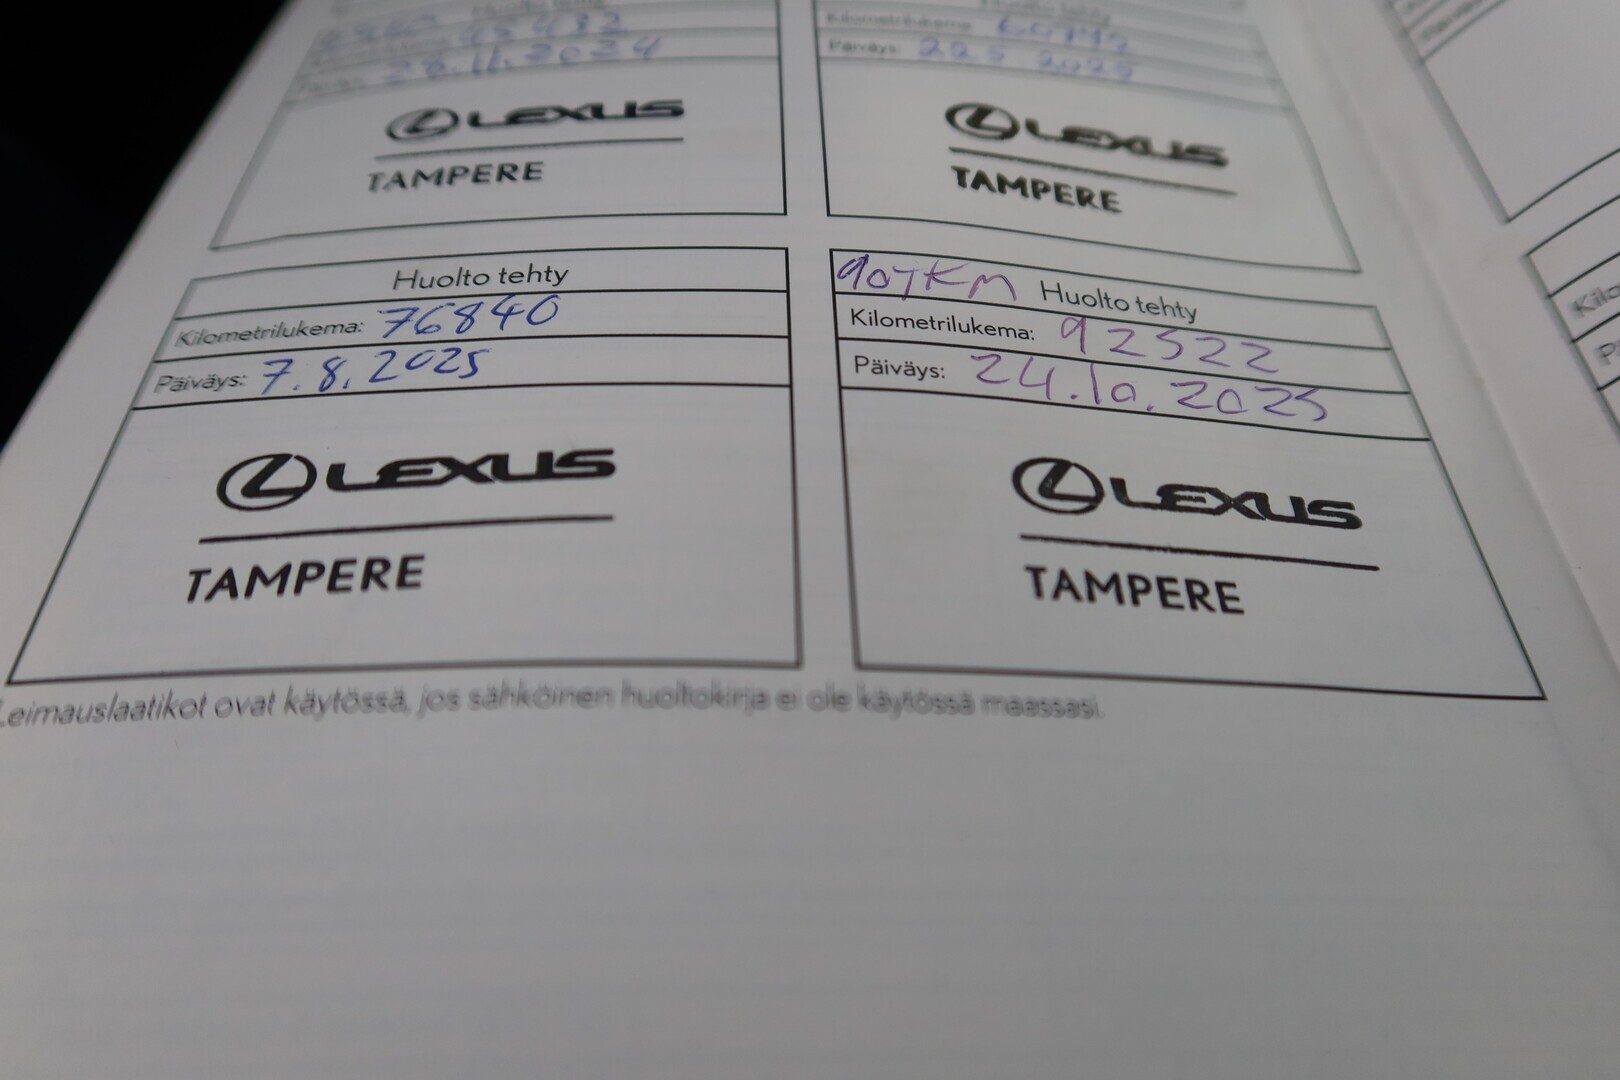 Huolto tehty
28.11.2024
LEXUS
TAMPERE
Huolto tehty
Kilometrilukema:
Päiväys: 22.5.2025
LEXUS
TAMPERE
Huolto tehty
Kilometrilukema: 76840
Päiväys: 7.8.2025
LEXUS
TAMPERE
90TKM Huolto tehty
Kilometrilukema: 92522
Päiväys: 24.10.2025
LEXUS
TAMPERE
Leimauslaatikot ovat käytössä, jos sähköinen huoltokirja ei ole käytössä maassasi.